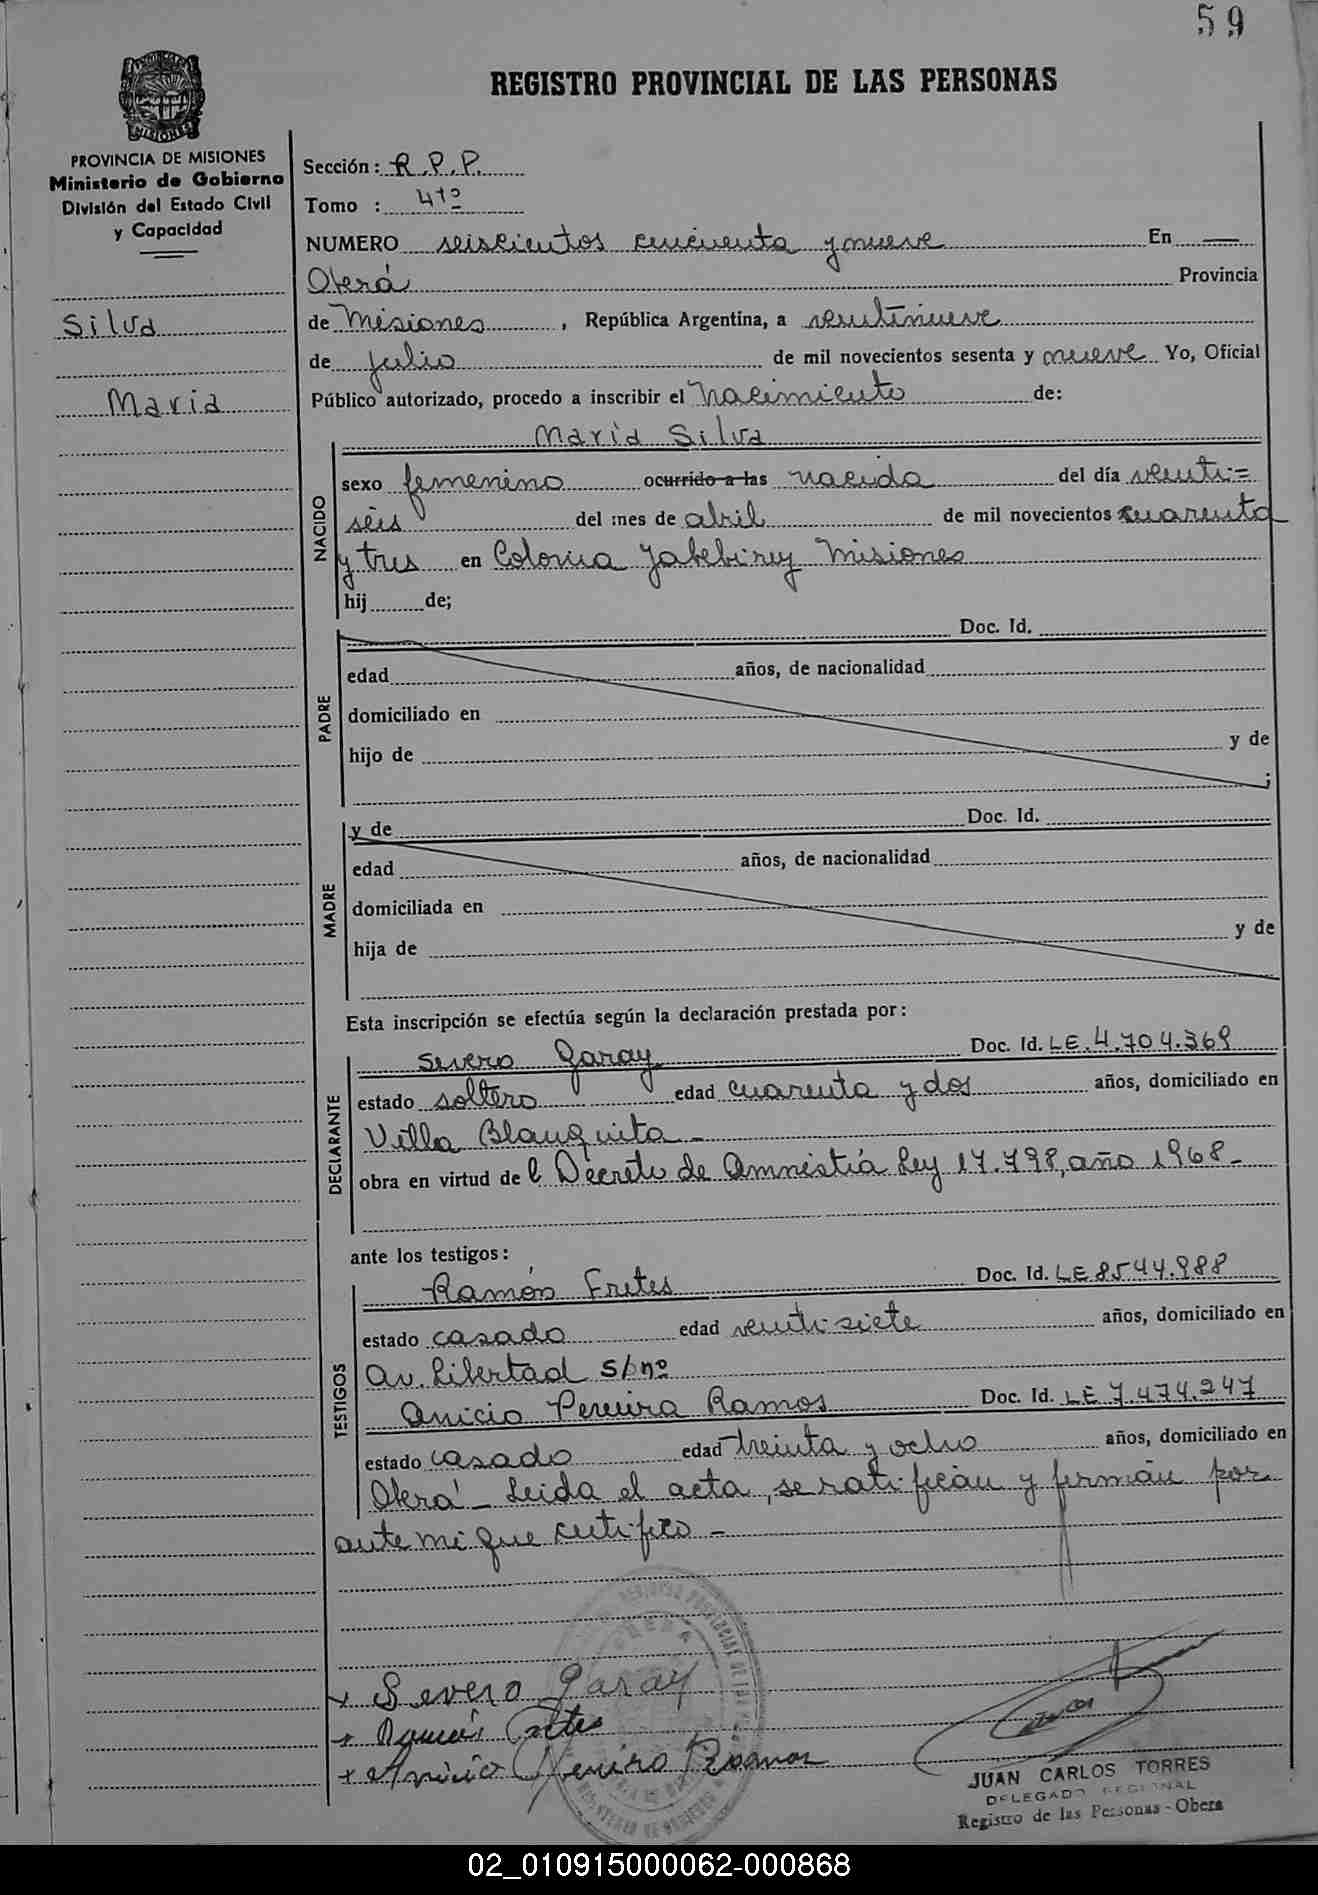 59
REGISTRO PROVINCIAL DE LAS PERSONAS
PROVINCIA DE MISIONES
Ministerio de Gobierno
División del Estado Civil
y Capacidad
Silva
Maria
Sección: R.P.P.
Tomo : 41º
NUMERO seiscientos cincuenta y nueve En
Oberá Provincia
de Misiones, República Argentina, a veintinueve
de julio de mil novecientos sesenta y nueve Yo, Oficial
Público autorizado, procedo a inscribir el Nacimiento de:
NACIDO
Maria Silva
sexo femenino ocurrido a las nacida del día veinti=
séis del mes de abril de mil novecientos cuarenta
y tres en Colonia Yabebirey Misiones
hij de;
PADRE
Doc. Id.
edad años, de nacionalidad
domiciliado en
hijo de y de
;
MADRE
y de Doc. Id.
edad años, de nacionalidad
domiciliada en
hija de y de
Esta inscripción se efectúa según la declaración prestada por:
DECLARANTE
Severo Garay Doc. Id. LE.4.704.369
estado soltero edad cuarenta y dos años, domiciliado en
Villa Blanquita -
obra en virtud de l Decreto de Amnistía Ley 17.798, año 1968.-
ante los testigos:
TESTIGOS
Ramón Fretes Doc. Id. LE 8544.988
estado casado edad veintisiete años, domiciliado en
Av. Libertad s/nº
Anicio Pereira Ramos Doc. Id. LE 7.474.247
estado casado edad treinta y ocho años, domiciliado en
Oberá - Leida el acta, se ratifican y firman por
ante mi que certifico -
+ Severo Garay
+ Ramón Fretes
+ Anicio Pereira Ramos
JUAN CARLOS TORRES
DELEGADO REGIONAL
Registro de las Personas - Obera
02_010915000062-000868